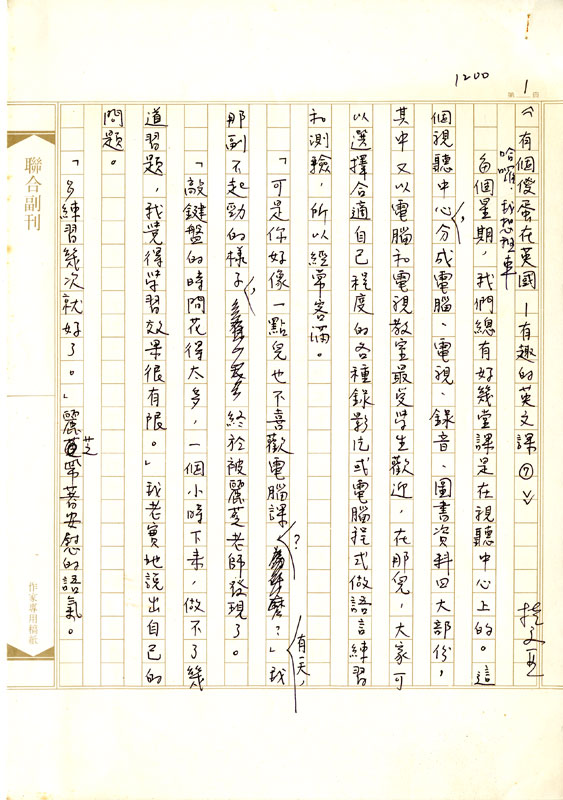 1200
第 1 頁
《有個傻蛋在英國—有趣的英文課⑦》
哈囉,我想班車
每個星期,我們總有好幾堂課是在視聽中心上的。這
個視聽中心,分成電腦、電視、錄音、圖書資料四大部份,
其中又以電腦和電視教室最受學生歡迎,在那兒,大家可
以選擇合適自己程度的各種錄影片或電腦程式做語言練習
和測驗,所以經常客滿。
「可是你好像一點兒也不喜歡電腦課?」有一天,我
那副不起勁的樣子,終於被麗芝老師發現了。
「敲鍵盤的時間花得太多,一個小時下來,做不了幾
道習題,我覺得學習效果很有限。」我老實地說出自己的
問題。
「多練習幾次就好了。」麗芝帶著安慰的語氣。
聯合副刊
作家專用稿紙